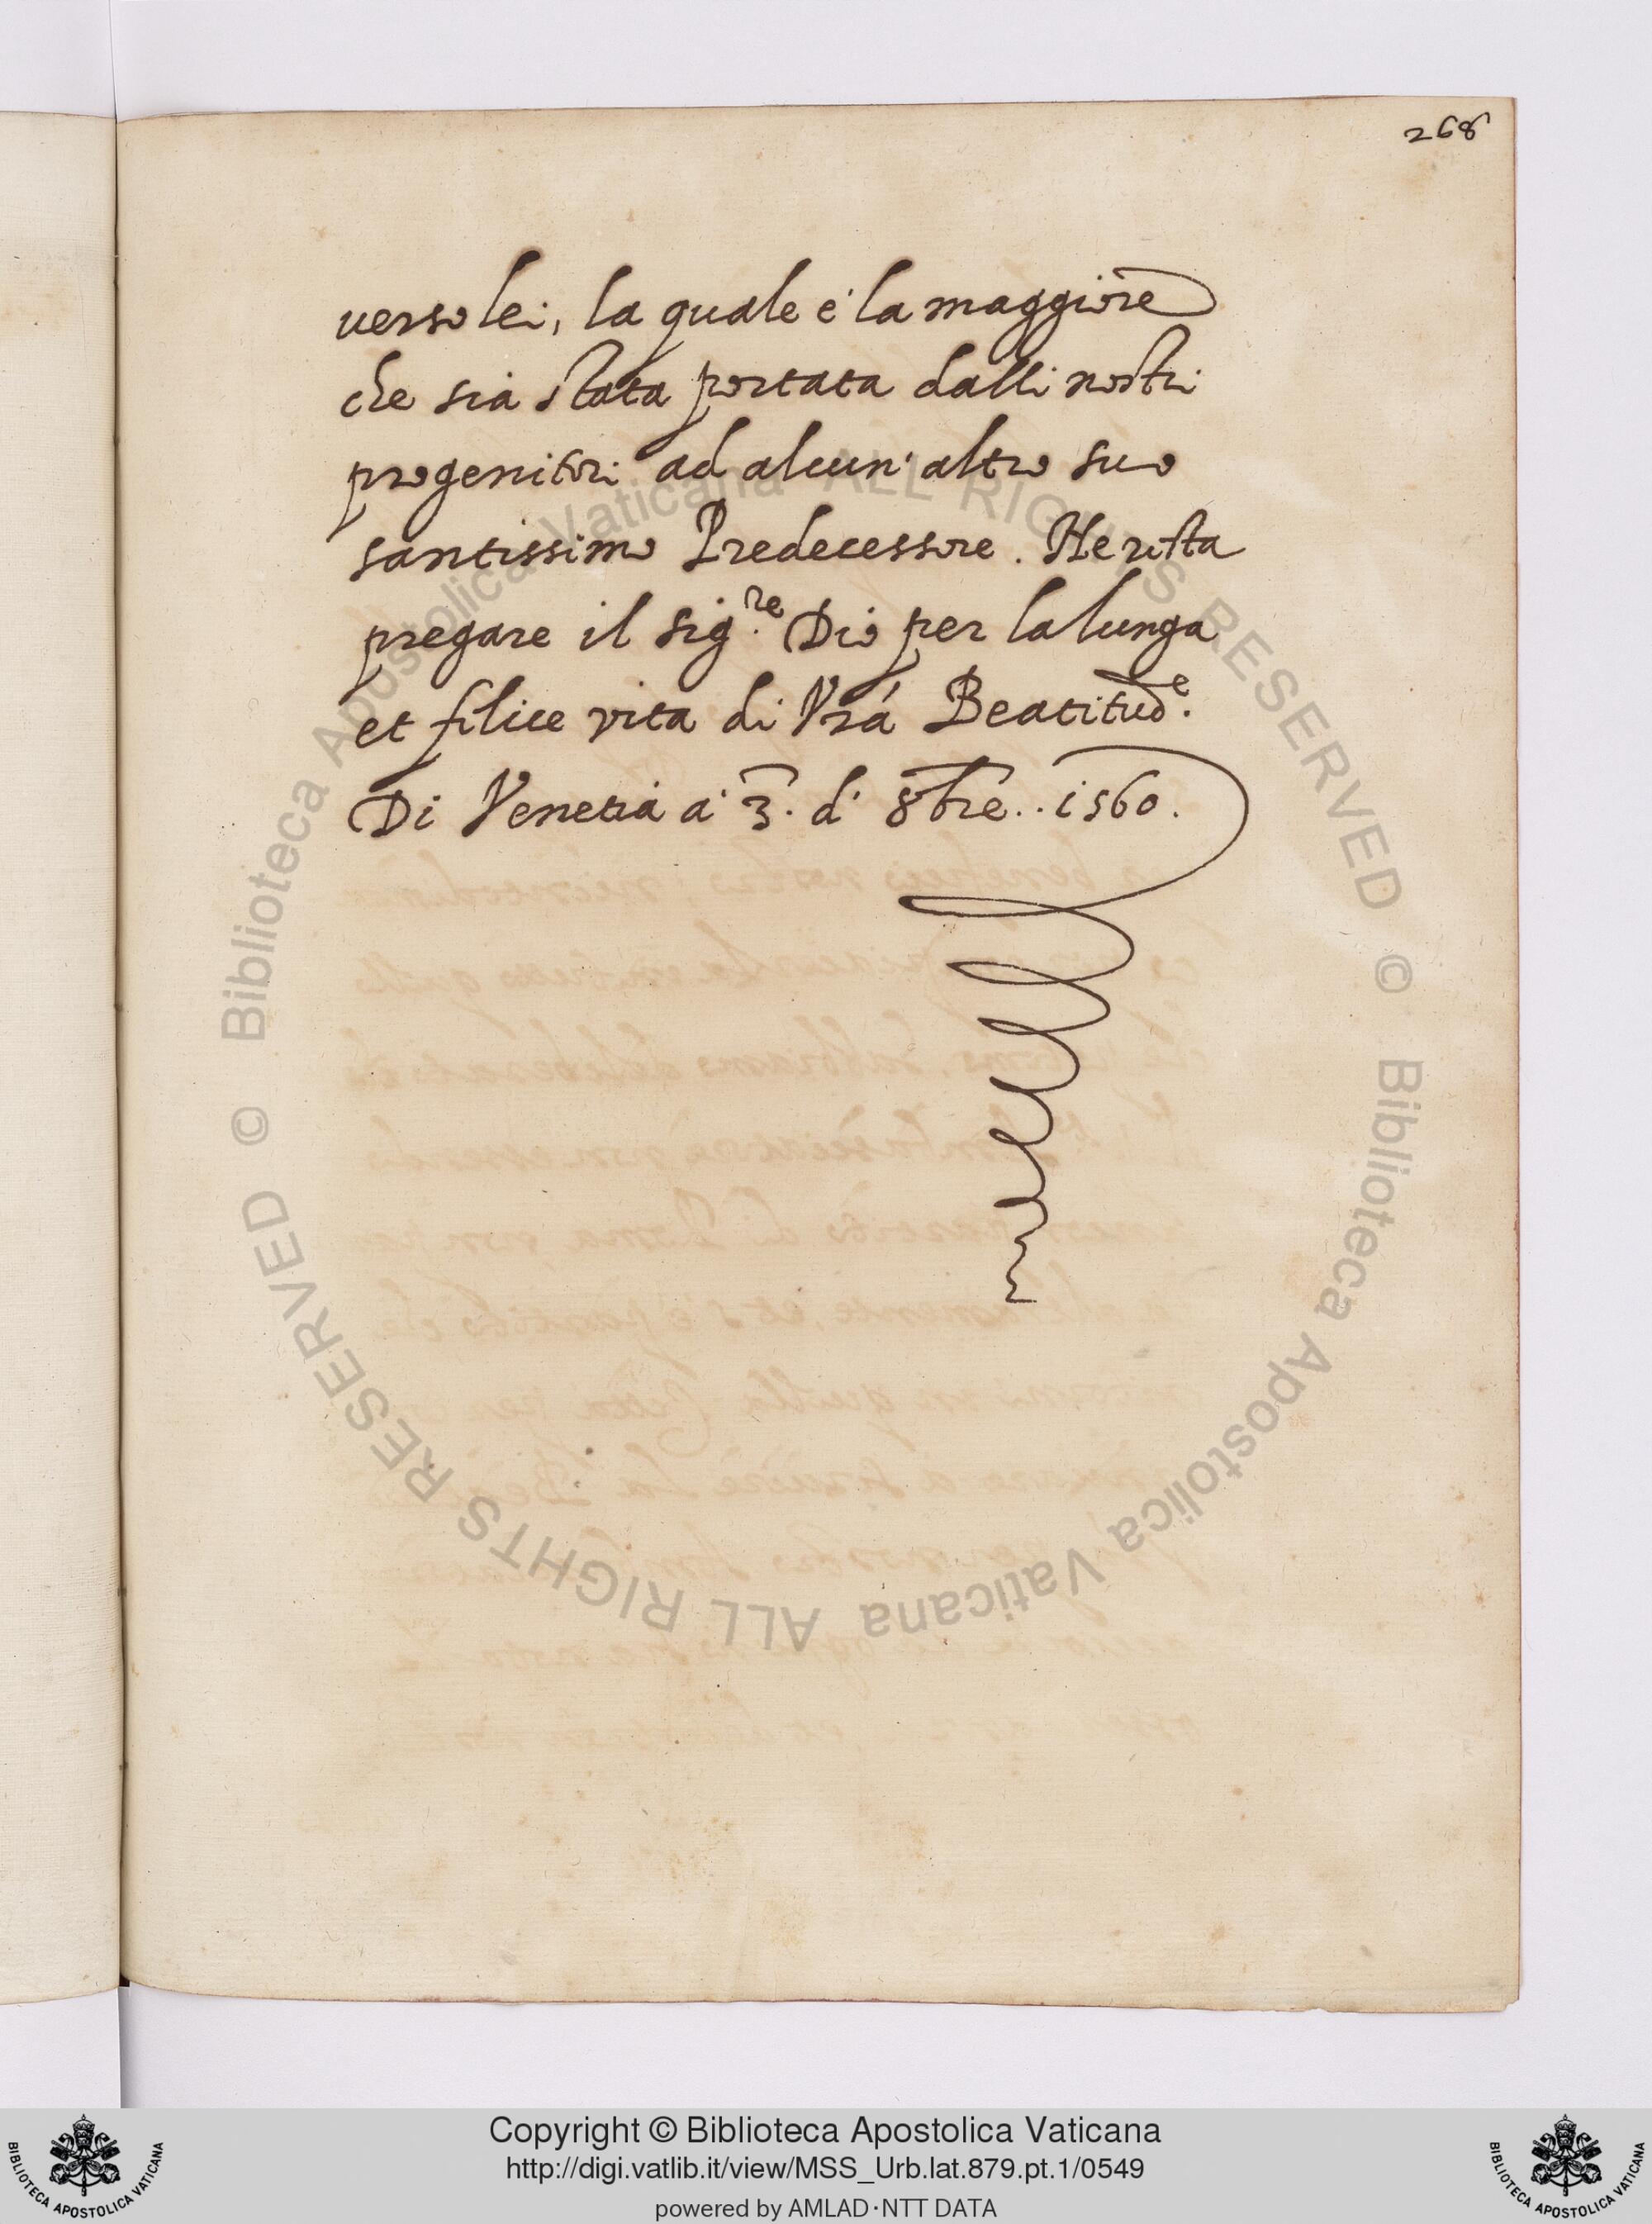 268
verso lei, la quale è la maggiore
che sia stata portata dalli nostri
progenitori ad alcun' altro suo
santissimo Predecessore. Ne resta
pregare il sig.re Dio per la lunga
et felice vita di Vrá Beatitud.e
Di Venetia à 3. d' 8bre.. 1560.
© Biblioteca Apostolica Vaticana ALL RIGHTS RESERVED
© Biblioteca Apostolica Vaticana ALL RIGHTS RESERVED
Copyright © Biblioteca Apostolica Vaticana
http://digi.vatlib.it/view/MSS_Urb.lat.879.pt.1/0549
powered by AMLAD·NTT DATA
BIBLIOTECA APOSTOLICA VATICANA
BIBLIOTECA APOSTOLICA VATICANA